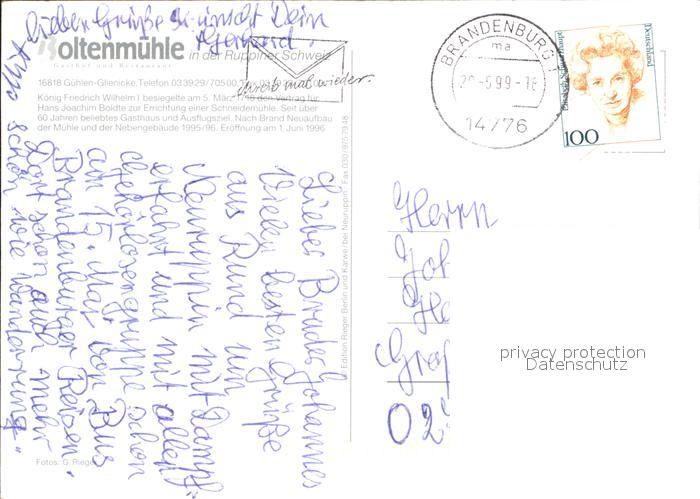 Boltenmühle in der Ruppiner Schweiz
Gasthof und Restaurant
16818 Gühlen-Glienicke, Telefon 033929/70500,
König Friedrich Wilhelm I besiegelte am 5. März 1718 den Vertrag für
Hans Joachim Boldte zur Errichtung einer Schneidemühle. Seit über
60 Jahren beliebtes Gasthaus und Ausflugsziel. Nach Brand Neuaufbau
der Mühle und der Nebengebäude 1995/96. Eröffnung am 1. Juni 1996
schreib mal wieder
BRANDENBURG
ma
20-5.99-18
14776
Deutschland
100
Lieber Bruder Johannes
Vielen besten Grüße
aus Rund um
Neuruppin mit Dampf-
erfahrt und mit allen
Gehörlosengruppe schon
am 15. Mai von Bus
Brandenburger Reisen.
Dort schön auch mehr
schön wie Wanderung.
Lieben Grüße wünscht Dein
Gerhard
© Edition Rieger Berlin und Karwe/ bei Neuruppin Fax 030/975 79 48
Fotos: G. Rieger
Herrn
Joh
He
Graf
02
privacy protection
Datenschutz